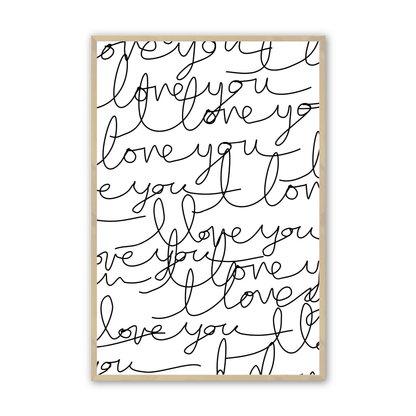 love you
I love you
I love yo
love you
e you I lov
I love you
ove you
I love y
I love
love you
you